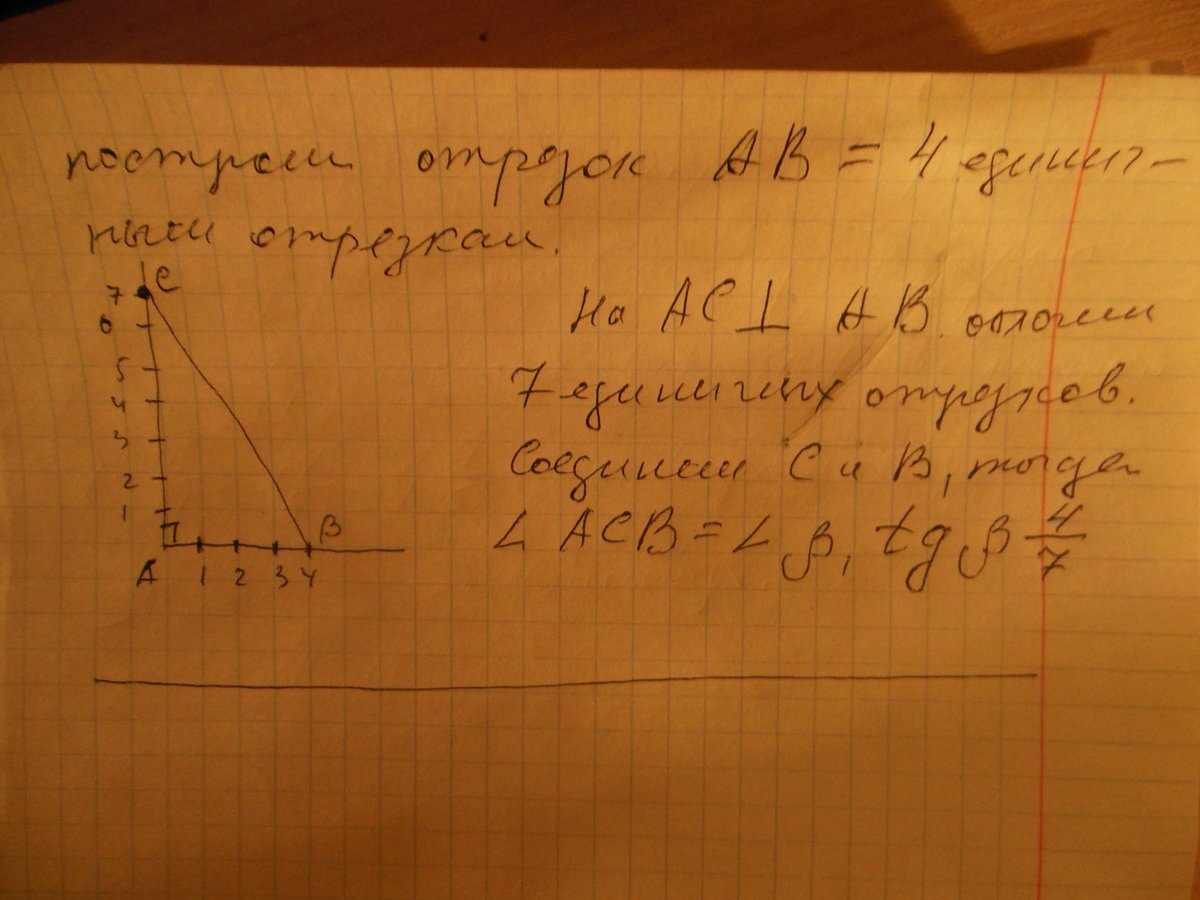 построим отрезок AB = 4 единич-
ным отрезкам.
На AC ⊥ AB отложим
7 единичных отрезков.
Соединим C и B, тогда
∠ ACB = ∠ β, tg β 4/7
C
7
6
5
4
3
2
1
B
A 1 2 3 4